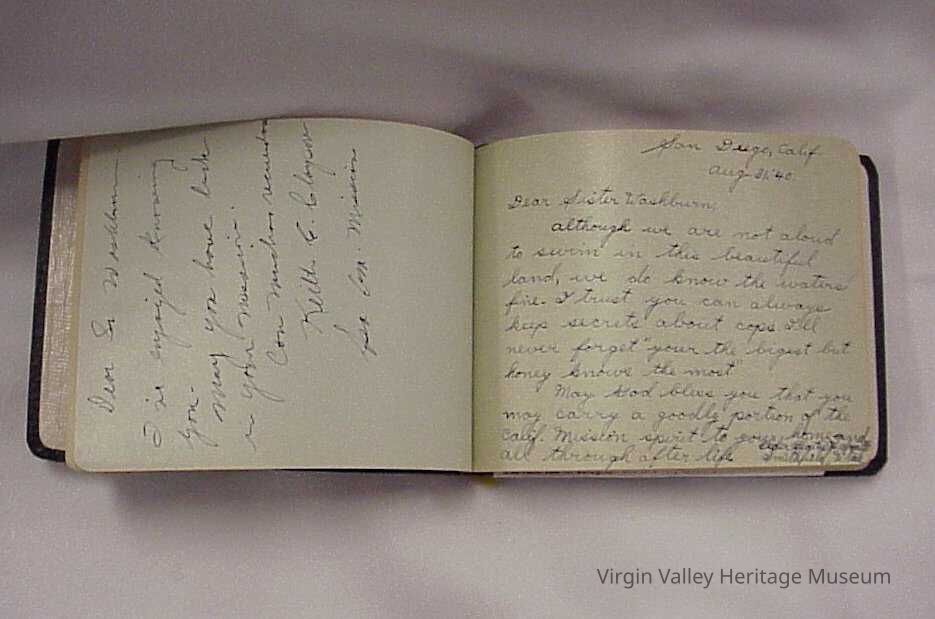 Dear Sr Washburn
I've enjoyed knowing
you.
May you have luck
in your mission.
Con muchos recuerdos
Keith E. Clayson
Mission
San Diego, Calif
Aug 31, '40.
Dear Sister Washburn,
although we are not aloud
to swim in this beautiful
land, we do know the waters
fine. I trust you can always
keep secrets about cops I'll
never forget "your the bigest but
honey knows the most"
May God bless you that you
may carry a goodly portion of the
Calif. Mission spirit to your home and
all through after life
Virgin Valley Heritage Museum